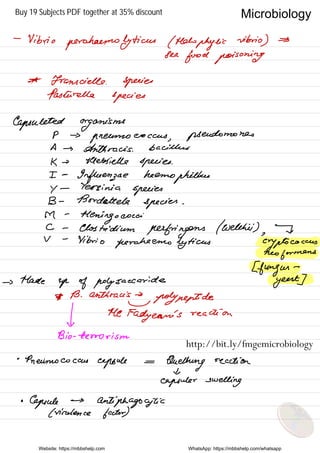 Buy 19 Subjects PDF together at 35% discount
Microbiology
- Vibrio perahaemolyticus (Halophylic vibrio) ⇒
Sea food poisoning
* Francielle species
Pasturella species
Capsulated organisms
P → pneumococcus, pseudomonas
A → Anthracis. bacillus
K → Klebsielle species.
I - Influenzae haemophillus
Y - Yersinia species
B - Bordattela species.
M - Meningococci
C - Clostridium perfringens (welchii),
V - Vibrio perahaemolyticus
cryptococcus
neoformans
[fungus -
yeast]
→ Made up of polysaccaride
* B. anthracis → polypeptide
Mc Fadyean's reaction
Bio-terrorism
http://bit.ly/fmgemicrobiology
• Pneumococcus capsule = Quellung reaction
↓
capsular swelling
• Capsule → antiphagocytic
(virulence factor)
Website: https://mbbshelp.com
WhatsApp: https://mbbshelp.com/whatsapp